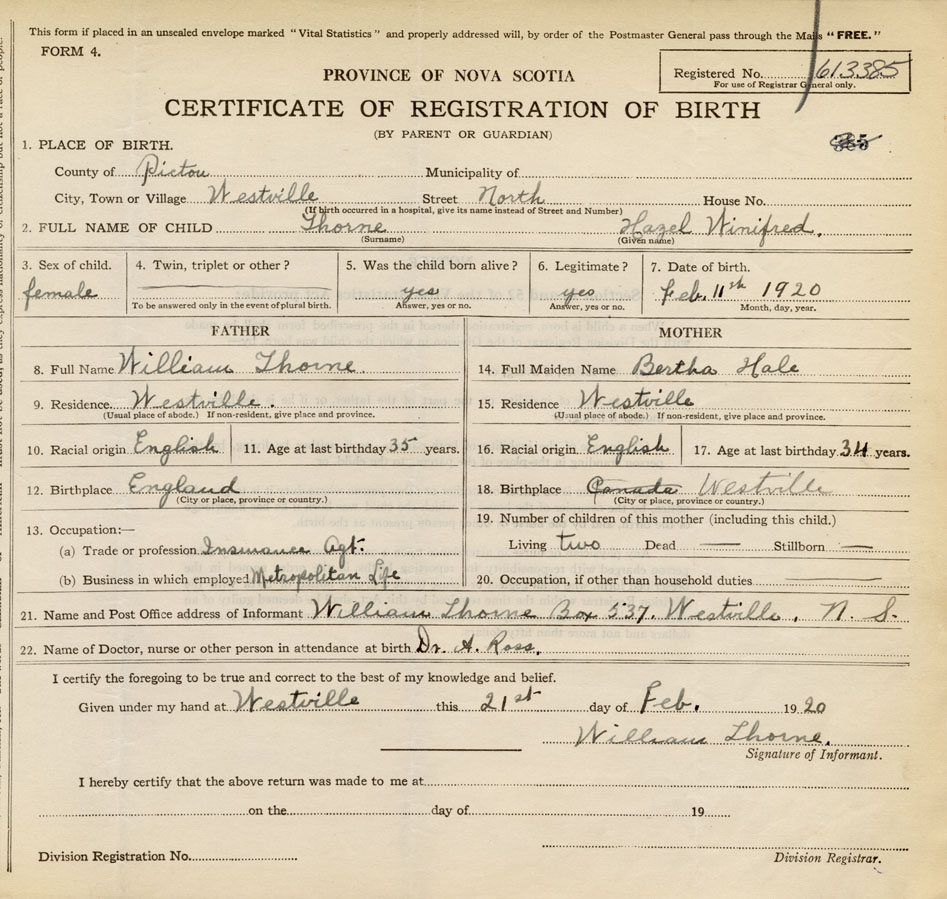 This form if placed in an unsealed envelope marked "Vital Statistics" and properly addressed will, by order of the Postmaster General pass through the Mails "FREE."
FORM 4.
Registered No. 613385
For use of Registrar General only.
PROVINCE OF NOVA SCOTIA
CERTIFICATE OF REGISTRATION OF BIRTH
(BY PARENT OR GUARDIAN)
1. PLACE OF BIRTH.
County of Pictou Municipality of
City, Town or Village Westville Street North House No.
(If birth occurred in a hospital, give its name instead of Street and Number)
2. FULL NAME OF CHILD Thorne Hazel Winifred.
(Surname) (Given name)
3. Sex of child. 4. Twin, triplet or other? 5. Was the child born alive? 6. Legitimate? 7. Date of birth.
female yes yes Feb. 11th 1920
To be answered only in the event of plural birth. Answer, yes or no. Answer, yes or no. Month, day, year.
FATHER
8. Full Name William Thorne.
9. Residence. Westville.
(Usual place of abode.) If non-resident, give place and province.
10. Racial origin English 11. Age at last birthday 35 years.
12. Birthplace England
(City or place, province or country.)
13. Occupation:—
(a) Trade or profession Insurance Agt.
(b) Business in which employed Metropolitan Life
MOTHER
14. Full Maiden Name Bertha Hale
15. Residence Westville
(Usual place of abode.) If non-resident, give place and province.
16. Racial origin English 17. Age at last birthday 34 years.
18. Birthplace Canada Westville
(City or place, province or country.)
19. Number of children of this mother (including this child.)
Living two Dead — Stillborn —
20. Occupation, if other than household duties
21. Name and Post Office address of Informant William Thorne Box 537. Westville, N. S.
22. Name of Doctor, nurse or other person in attendance at birth Dr. A. Ross.
I certify the foregoing to be true and correct to the best of my knowledge and belief.
Given under my hand at Westville this 21st day of Feb. 1920
William Thorne.
Signature of Informant.
I hereby certify that the above return was made to me at
on the day of 19
Division Registration No.
Division Registrar.